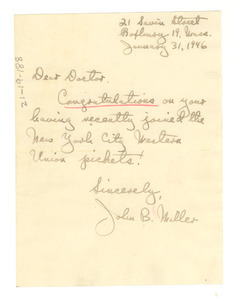 21 Savin Street
19, Mass.
January 31, 1946
Dear Doctor.
Congratulations on your
having recently joined the
New York City Western
Union pickets!
Sincerely,
John B. Miller